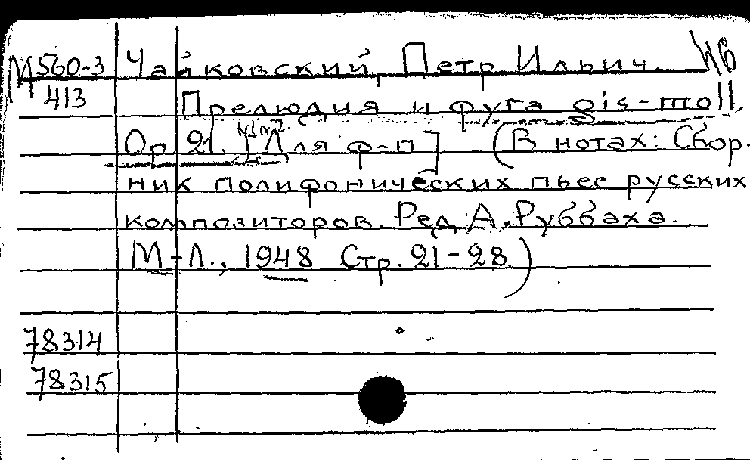 М560-3 Чайковский, Петр Ильич. НБ
413 Прелюдия и фуга gis-moll,
Op. 21. [Для ф-п] (В нотах: Сбор-
ник полифонических пьес русских
композиторов. Ред. А. Руббаха.
М-Л., 1948 Стр. 21-28)
78314
78315